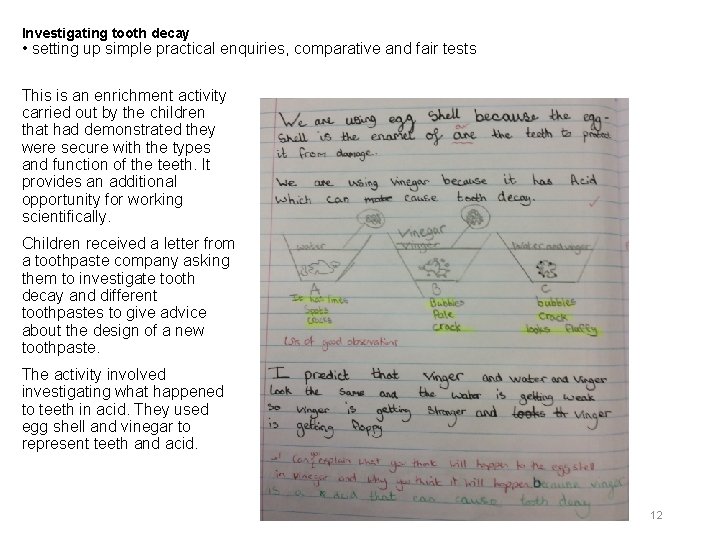 Investigating tooth decay
• setting up simple practical enquiries, comparative and fair tests
This is an enrichment activity
carried out by the children
that had demonstrated they
were secure with the types
and function of the teeth. It
provides an additional
opportunity for working
scientifically.
Children received a letter from
a toothpaste company asking
them to investigate tooth
decay and different
toothpastes to give advice
about the design of a new
toothpaste.
The activity involved
investigating what happened
to teeth in acid. They used
egg shell and vinegar to
represent teeth and acid.
We are using egg shell because the egg-
shell is the enamel of are the teeth to protect
it from damage.
We are using vinegar because it has Acid
which can make cause tooth decay.
water
vinegar
vinger
water and vinger
A
B
C
It has lines
Spots
cracks
Bubbles
Pale
crack
bubbles
Crack
looks fluffy
Lots of good observations
I predict that vinger and water and vinger
Look the same and the water is getting weak
so vinger is getting Stronger and looks vinger
is getting floppy
Can you explain what you think will happen to the egg shell
in vinegar and why you think it will happen because vinger
is a acid that can cause tooth decay
12